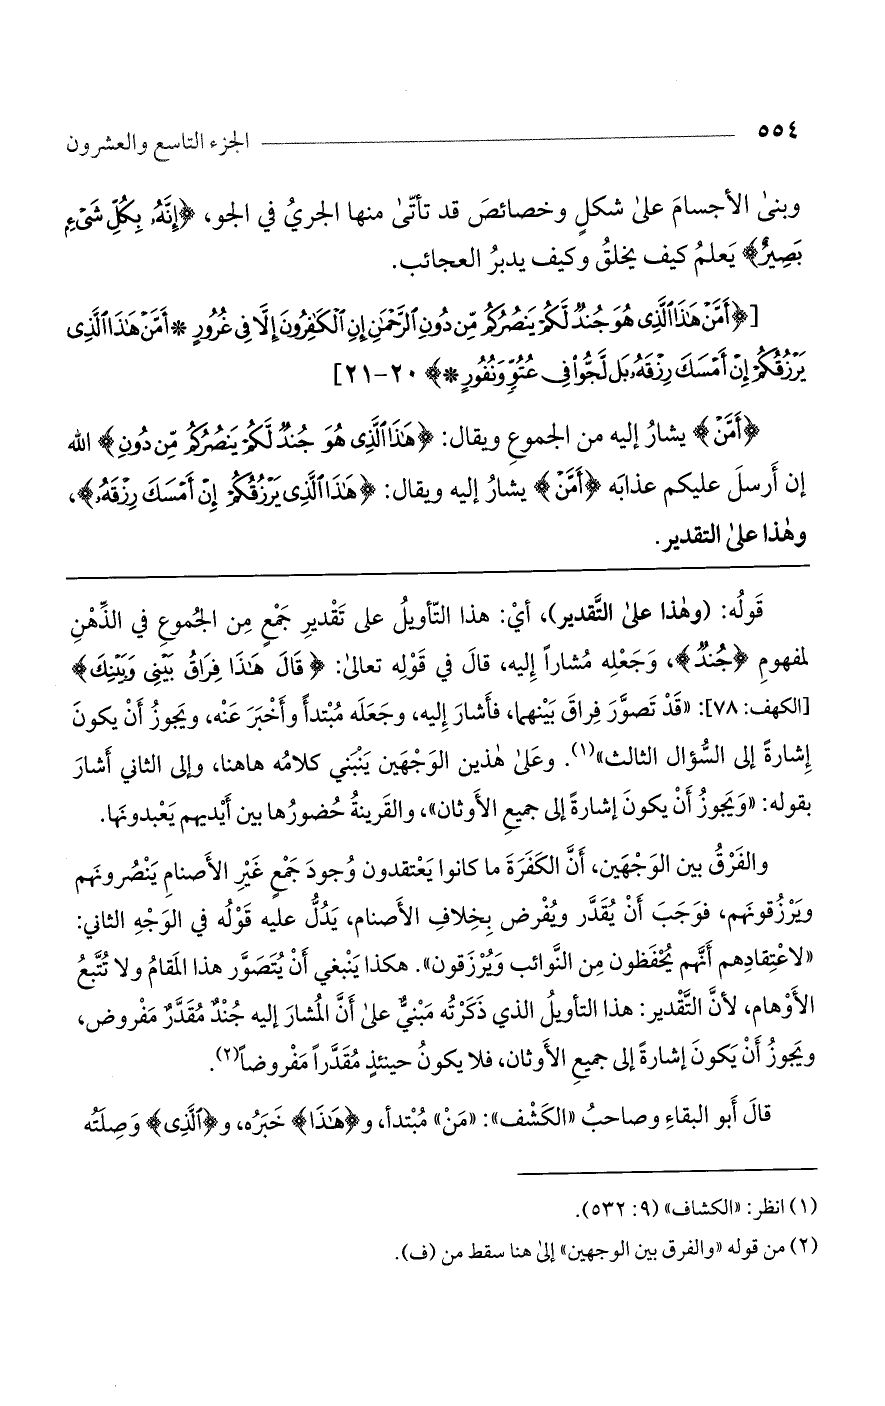 ٥٥٤ الجزء التاسع والعشرون
وبنىٰ الأجسامَ علىٰ شكلٍ وخصائصَ قد تأتّىٰ منها الجريُ في الجو، ﴿إِنَّهُۥ بِكُلِّ شَىْءٍ
بَصِيرٌ﴾ يَعلمُ كيف يخلقُ وكيف يدبرُ العجائب.
[﴿أَمَّنْ هَٰذَا ٱلَّذِى هُوَ جُندٌ لَّكُمْ يَنصُرُكُم مِّن دُونِ ٱلرَّحْمَٰنِ إِنِ ٱلْكَٰفِرُونَ إِلَّا فِى غُرُورٍ * أَمَّنْ هَٰذَا ٱلَّذِى
يَرْزُقُكُمْ إِنْ أَمْسَكَ رِزْقَهُۥ بَل لَّجُّوا۟ فِى عُتُوٍّ وَنُفُورٍ *﴾ ٢٠-٢١]
﴿أَمَّنْ﴾ يشارُ إليه من الجموعِ ويقال: ﴿هَٰذَا ٱلَّذِى هُوَ جُندٌ لَّكُمْ يَنصُرُكُم مِّن دُونِ﴾ الله
إن أَرسلَ عليكم عذابَه ﴿أَمَّنْ﴾ يشارُ إليه ويقال: ﴿هَٰذَا ٱلَّذِى يَرْزُقُكُمْ إِنْ أَمْسَكَ رِزْقَهُۥ﴾،
وهٰذا علىٰ التقدير.
قَولُه: (وهٰذا علىٰ التَّقدير)، أيْ: هذا التّأويلُ على تَقْديرِ جَمْعٍ مِن الجُموعِ في الذِّهْنِ
لمفهومِ ﴿جُندٌ﴾، وَجَعْلِه مُشاراً إليه، قالَ في قَوْلِه تعالىٰ: ﴿قَالَ هَٰذَا فِرَاقُ بَيْنِى وَبَيْنِكَ﴾
[الكهف: ٧٨]: «قَدْ تَصوَّرَ فِراقَ بَيْنهما، فأشارَ إليه، وجعَلَه مُبْتدأً وأَخْبَرَ عَنْه، ويَجوزُ أنْ يكونَ
إشارةً إلى السُّؤال الثالث»(١). وعَلىٰ هٰذين الوَجْهَين يَنْبَني كلامُه هاهنا، وإلى الثاني أشارَ
بقوله: «وَيَجوزُ أنْ يكونَ إشارةً إلى جميعِ الأوثان»، والقَرينةُ حُضورُها بين أَيْديهم يَعْبدونَها.
والفَرْقُ بين الوَجْهَين، أنَّ الكَفَرَةَ ما كانوا يَعْتقدون وُجودَ جَمْعٍ غَيْرِ الأصنامِ يَنْصُرونَهم
ويَرْزُقونَهم، فوَجَبَ أنْ يُقدَّر ويُفْرض بِخلافِ الأصنام، يَدُلُّ عليه قَوْلُه في الوَجْهِ الثاني:
«لاعْتِقادِهم أنَّهم يُحْفَظون مِن النَّوائب وَيُرْزَقون». هكذا يَنْبغي أنْ يُتَصَوَّر هذا المَقامُ ولا تُتَّبعُ
الأوْهام، لأنَّ التَّقْدير: هذا التأويلُ الذي ذَكَرْتُه مَبْنيٌّ علىٰ أنَّ المُشارَ إليه جُنْدٌ مُقَدَّرٌ مَفْروض،
ويَجوزُ أنْ يَكونَ إشارةً إلى جميعِ الأوثان، فلا يكونُ حينئذٍ مُقَدَّراً مَفْروضاً(٢).
قالَ أبو البقاءِ وصاحبُ «الكَشْف»: «مَنْ» مُبْتدأ، و﴿هَٰذَا﴾ خَبَرُه، و﴿ٱلَّذِى﴾ وَصِلَتُه
(١) انظر: «الكشاف» (٩: ٥٣٢).
(٢) من قوله «والفرق بين الوجهين» إلىٰ هنا سقط من (ف).